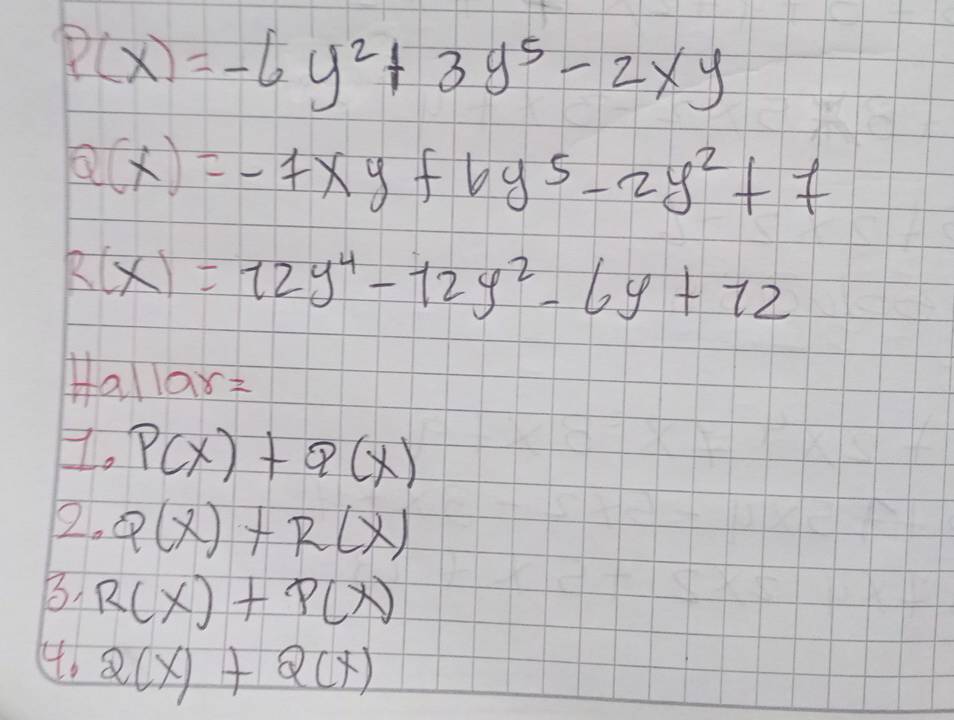 P(X) = -6y² + 3y⁵ - 2xy
Q(X) = -7xy + 6y⁵ - 2y² + 7
R(X) = 12y⁴ - 12y² - 6y + 12
Hallar=
1. P(X) + Q(X)
2. Q(X) + R(X)
3. R(X) + P(X)
4. Q(X) + Q(X)